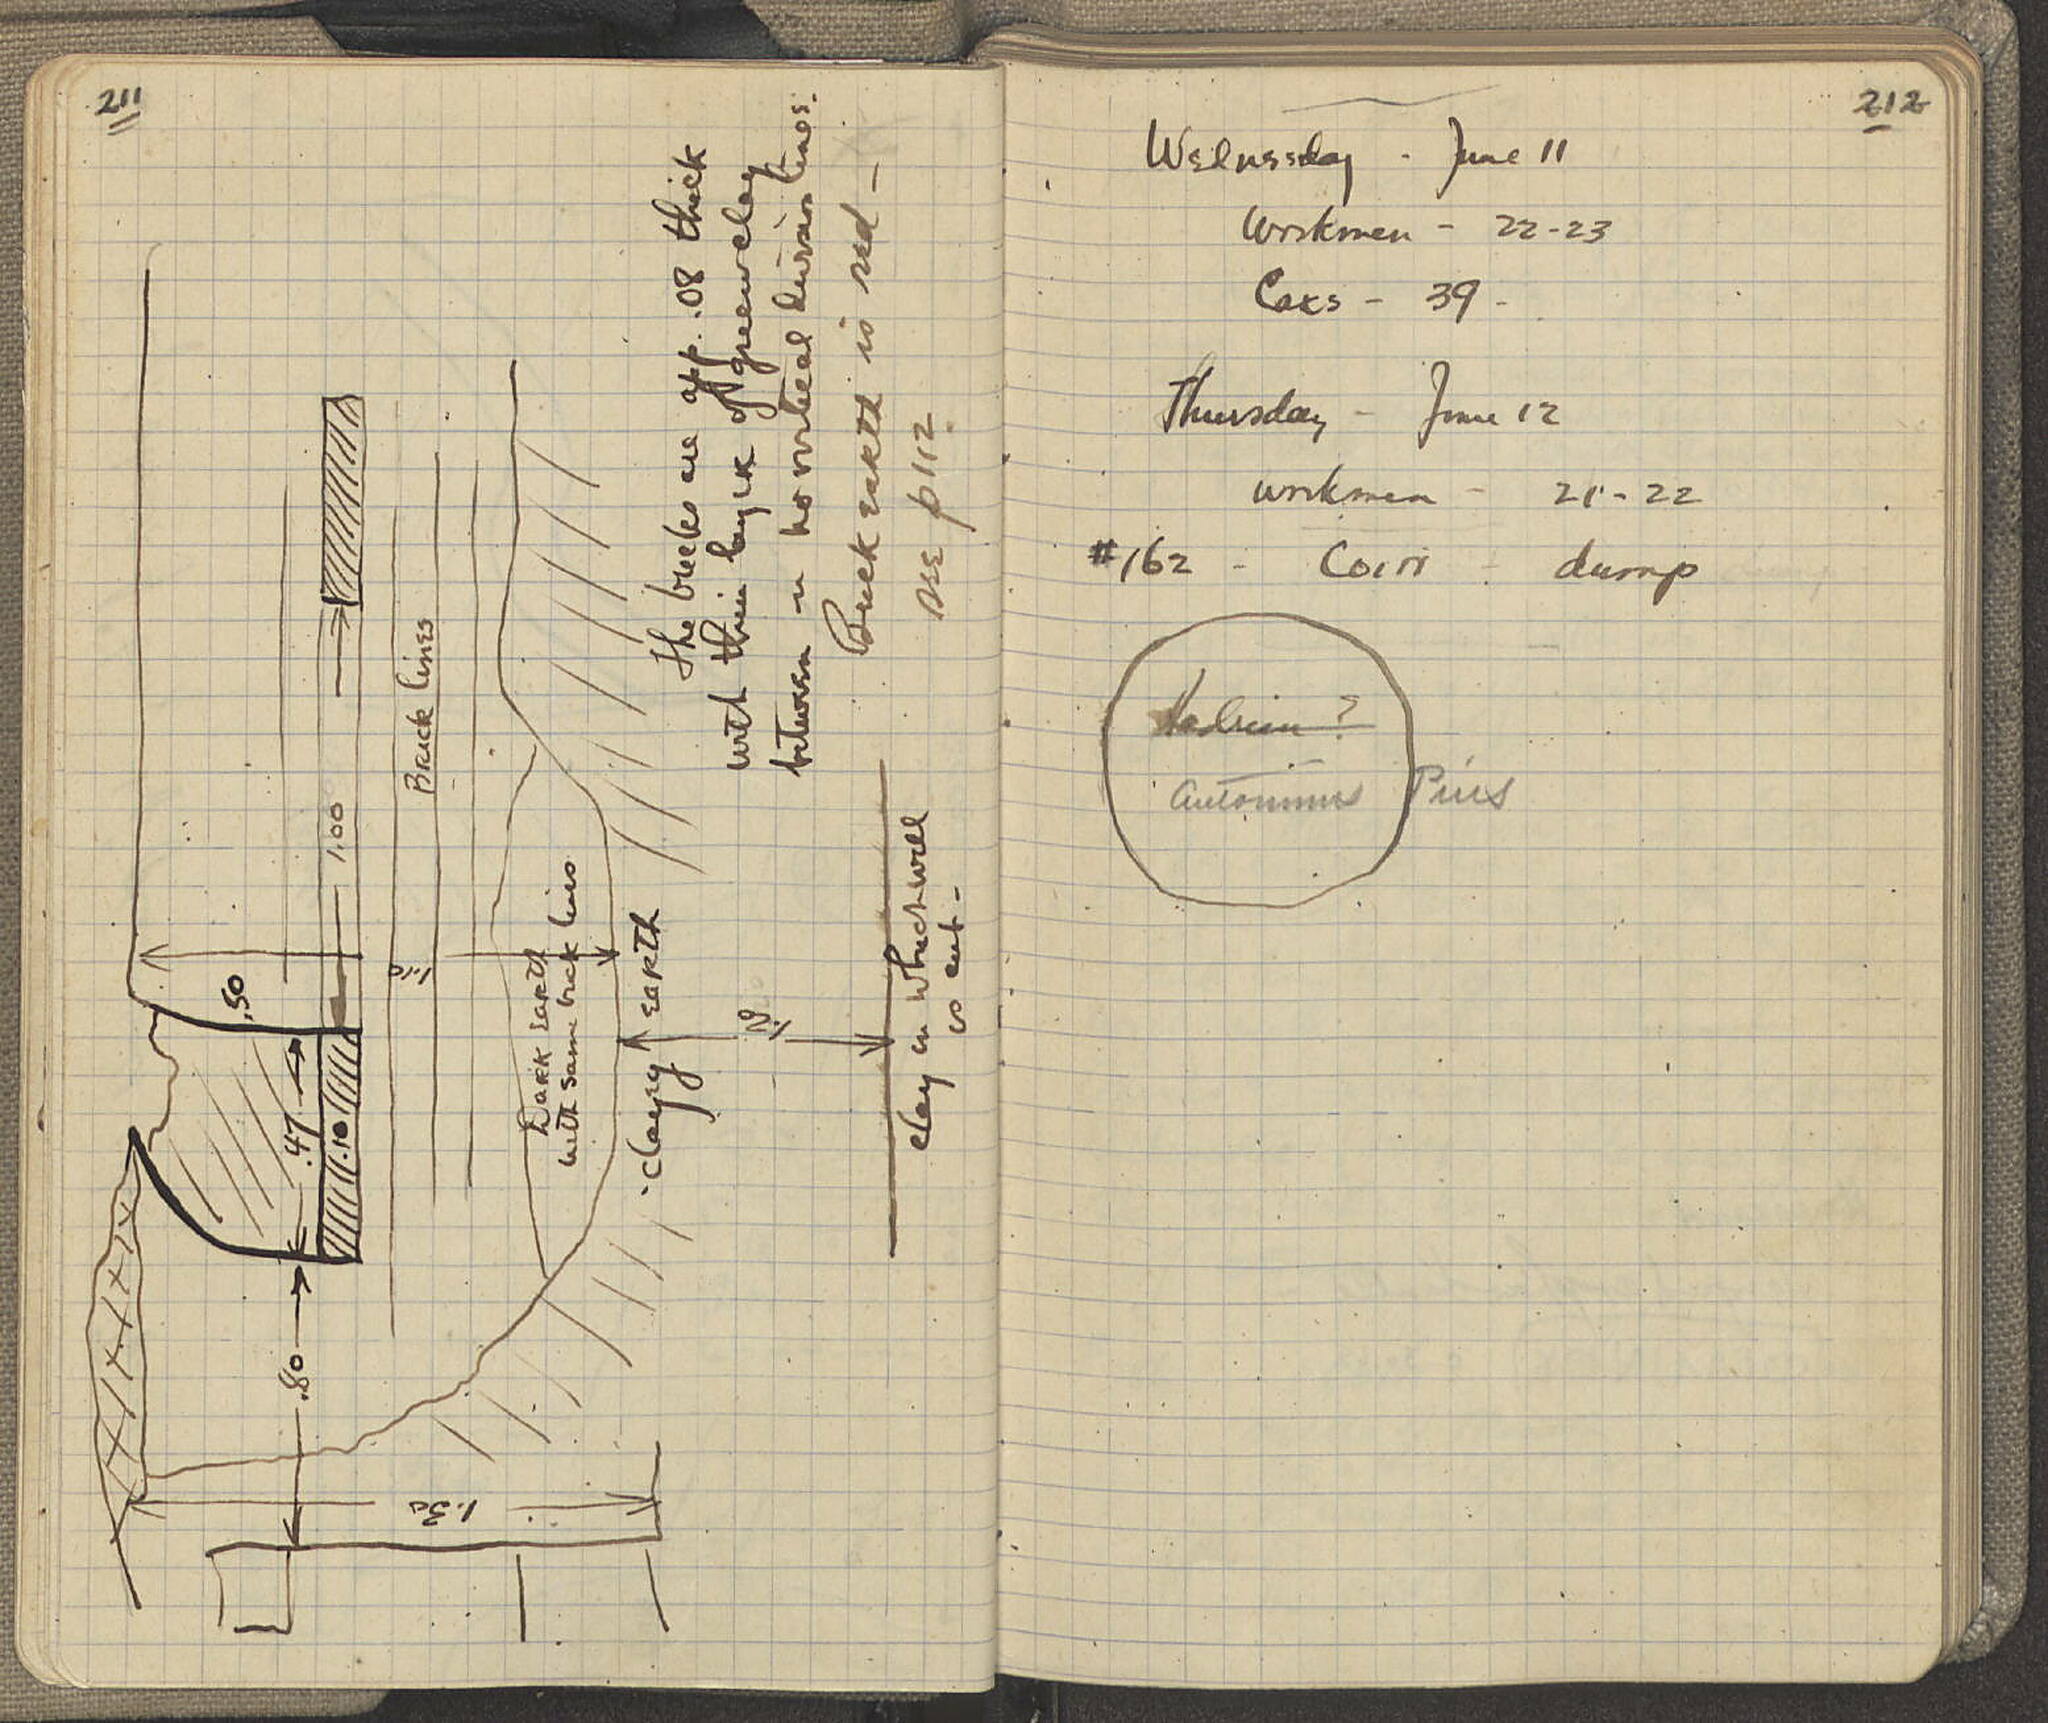 211
.50
.47
.10
.80
1.00
Brick lines
1.10
1.30
Dark earth
with same brick lines
clayey earth
1.20
clay in which well
is cut -
The bricks are app. .08 thick
with thin layer of green clay
between - no vertical division lines.
Brick earth is red -
see p 112.
212
Wednesday - June 11
Workmen - 22-23
Cars - 39 -
Thursday - June 12
workmen - 21-22
#162 - Coin - dump
Hadrian ?
Antoninus Pius